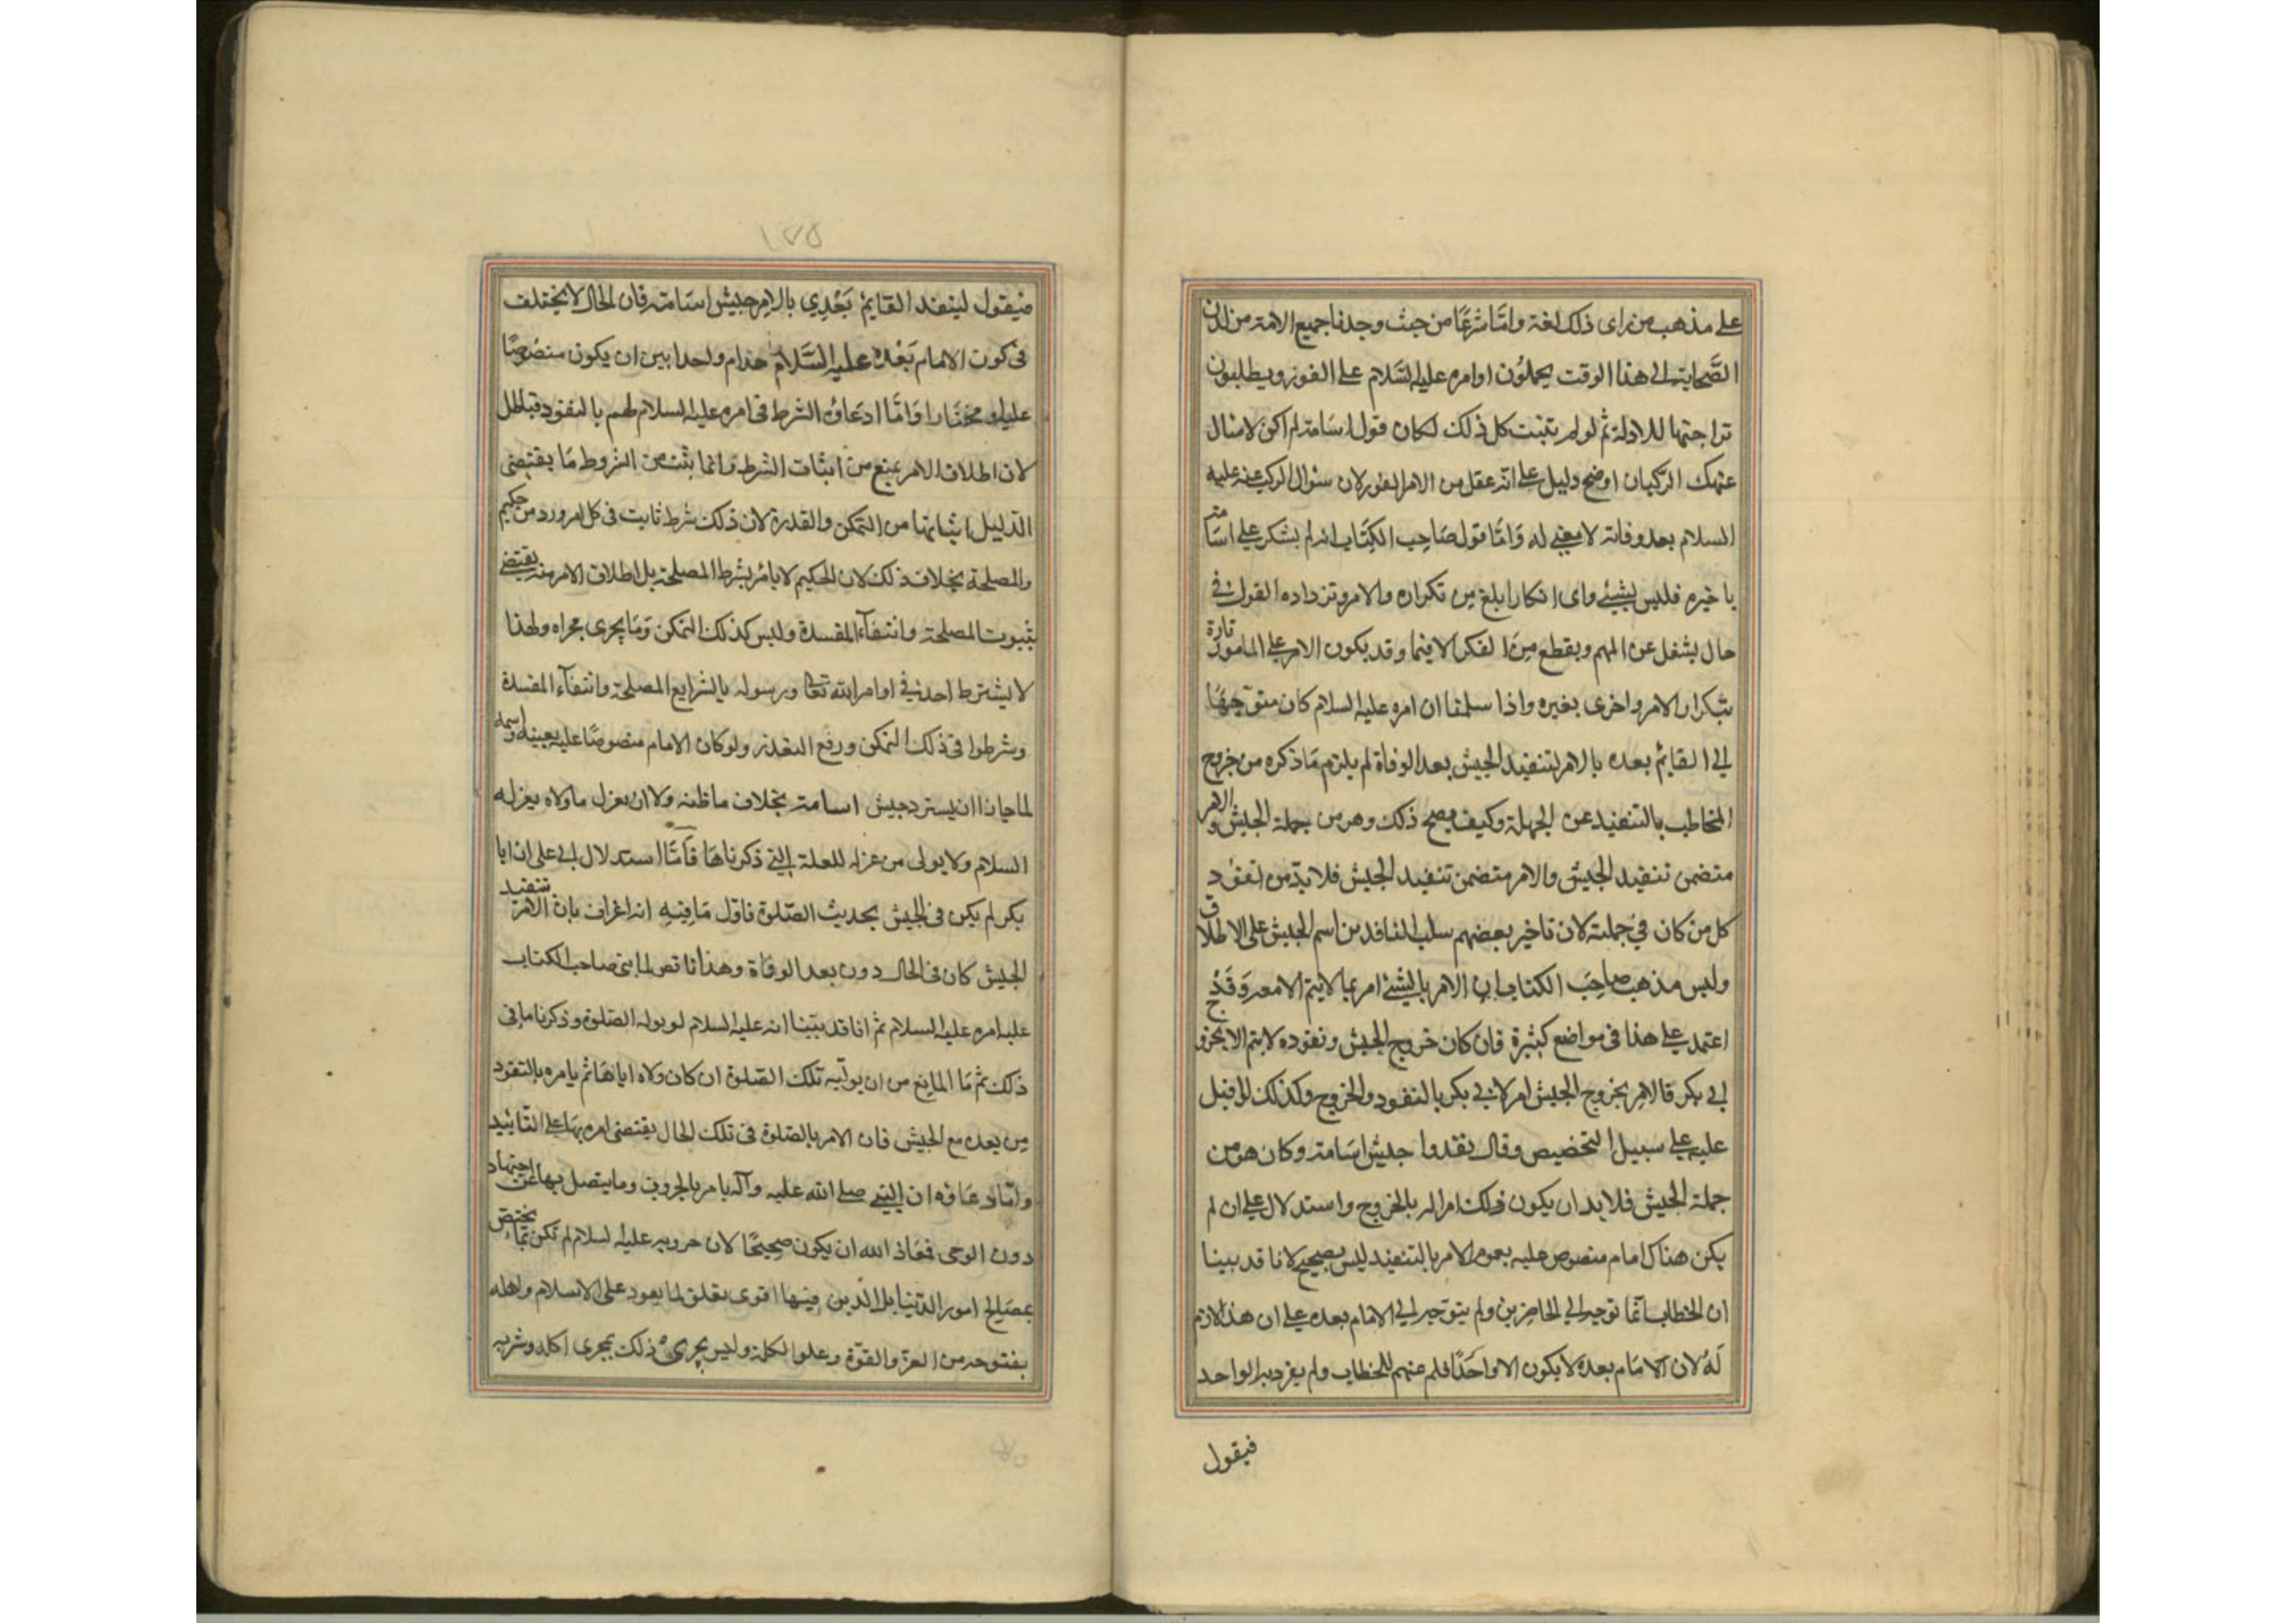 على مذهب من راى ذلك لغة وامّا شرعًا من حيث وجدنا جميع الامة من لدن
الصَّحابة الى هذا الوقت يحملوُن اوامره عليه السَّلام على الفور ويطلبون
تراجتها للادلة ثم لو لم يثبت كل ذلك لكان قول اسَامة لم اكن لاسال
عنك الركبان اوضح دليل على انه عقل من الامر الفور لان سئوال الركب عنه عليه
السلام بعد وفاته لا معنى له وَامّا قول صَاحِب الكِتَاب انه لم ينكر على اسَامة
يا خيره فليس بشيئ واى انكار ابلغ مِن تكراره والامر وتزداده القول فى
حال يشغل عن المهم ويقطع مِنَ الفكر الا فيها وقد يكون الامر على المامور تارة
بتكرار الامر واخرى بغيره واذا سلمنا ان امره عليه السلام كان متوّجهًا
الى القايم بعده بالامر لتنفيذ الجيش بعد الوفاة لم يلزم مَا ذكره من خروج
المخاطب بالتنفيذ عن الجهلة وكيف يصح ذلك وهو من جملة الجيش والامر
متضمن تنفيد الجيش والامر متضمن تنفيد الجيش فلا بدّ من نفوُد
كل من كان فى جملته لان تاخير بعضهم سلب النافدين اسم الجيش على الاطلاق
وليس مذهب صاحِبَ الكتاب ان الامر بالشئ امر بما لا يتم الا معه وَقَد
اعتمد على هذا فى مواضع كثيرة فان كان خروج الجيش ونفوده لا يتم الا بخروج
ابى بكر قالامر بخروج الجيش امر لابى بكر بالنفود والخروج وكذلك لو اقبل
عليه على سبيل التخصيص وقال نفدوا جيش اسَامة وكان هو من
جملة الجيش فلا بد ان يكون ذلك امرا له بالخروج واستدلال على ان لم
يكن هناك امام منصوص عليه بعموم الامر بالتنفيد ليس بصحيح لانا قد بينا
ان الخطاب انّما توجه الى الحاضرين ولم يتوجه الى الامام بعده على ان هذا لازم
لَهُ لان الامَام بعده لا يكون الا واحَدًا فلم عنهم للخطاب ولم يفرد به الواحد
فيقول
١٧٥
فيقول لينفد القايِمُ بَعْدِى بالامر جيش اسَامة فان الحال لا يختلف
فى كون الامام بَعْدهُ عليه السَّلام واحدا بين ان يكون منصُوصًا
عليه او مختَارا وَامّا ادعَاؤه الشرط فى امره عليه السلام لهم بالنفود فباطل
لان اطلاق الامر يمنع من اثبات الشرط وانما يثبت من الشروط مَا يقتضى
الدليل اثباتها من التمكن والقدرة لان ذلك شرط ثابت فى كل امر ورد من حكيم
والمصلحة بخلاف ذلك لان الحكيم لا يامُر بشرط المصلحة بل اطلاق الامر منه يقتضى
بثبوت المصلحة وانتفآء المفسدة وليس كذلك التمكن وَمَا يجرى مجراه ولهذا
لا يشترط احد فى اوامر الله تعالى ورسوله بالشرايع المصلحة وانتفآء المفسدة
وشرطوا فى ذلك التمكن ورفع التعذر ولو كان الامام منصوصًا عليه بعينه واسمه
لما جاز ان يسترد جيش اسامة بخلاف ما ظنه ولا ان يعزل ما ولاه بعزله
السلام ولا يولى من عزله للعلة التى ذكرناهَا فَامَّا استدلال ابى على ان ابا
بكر لم يكن فى الجيش بحديث الصَلوة فاول مَا فِيهِ انه اعراف بان الامر تنفيد
الجيش كان فى الحال دون بعد الوفاة وهذا ناقص لما بنى صاحب الكتاب
عليه امره عليه السلام ثمّ انا قد بيّنا انه عليه السلام لو يوله الصَلوة وذكرنا ما فى
ذلك ثم مَا المانِع من ان يوليه تلك الصَلوة ان كان ولاه اياهَا ثم يامره بالنفود
مِن بعده مع الجيش فان الامر بالصَلوة فى تلك الحال يقتضى امره بهَا على التَّائيد
وامّا ادعَاؤه ان النبى صلى الله عليه وآله يا مر بالحروب وما يتصل بها عن اجتهاد
دون الوحى فمَعَاذ الله ان يكون صحِيحًا لان حروبه عليه السلام لم تكن ممّا يختصّ
بمصَالح امور الدنيا بل للدين فيها اقوى تعلق لما يعود على الاسلام واهله
بفتوحه من العز والقوّة وعلوا لكلمة وليس يجرى ذلك مجرى اكله وشربه